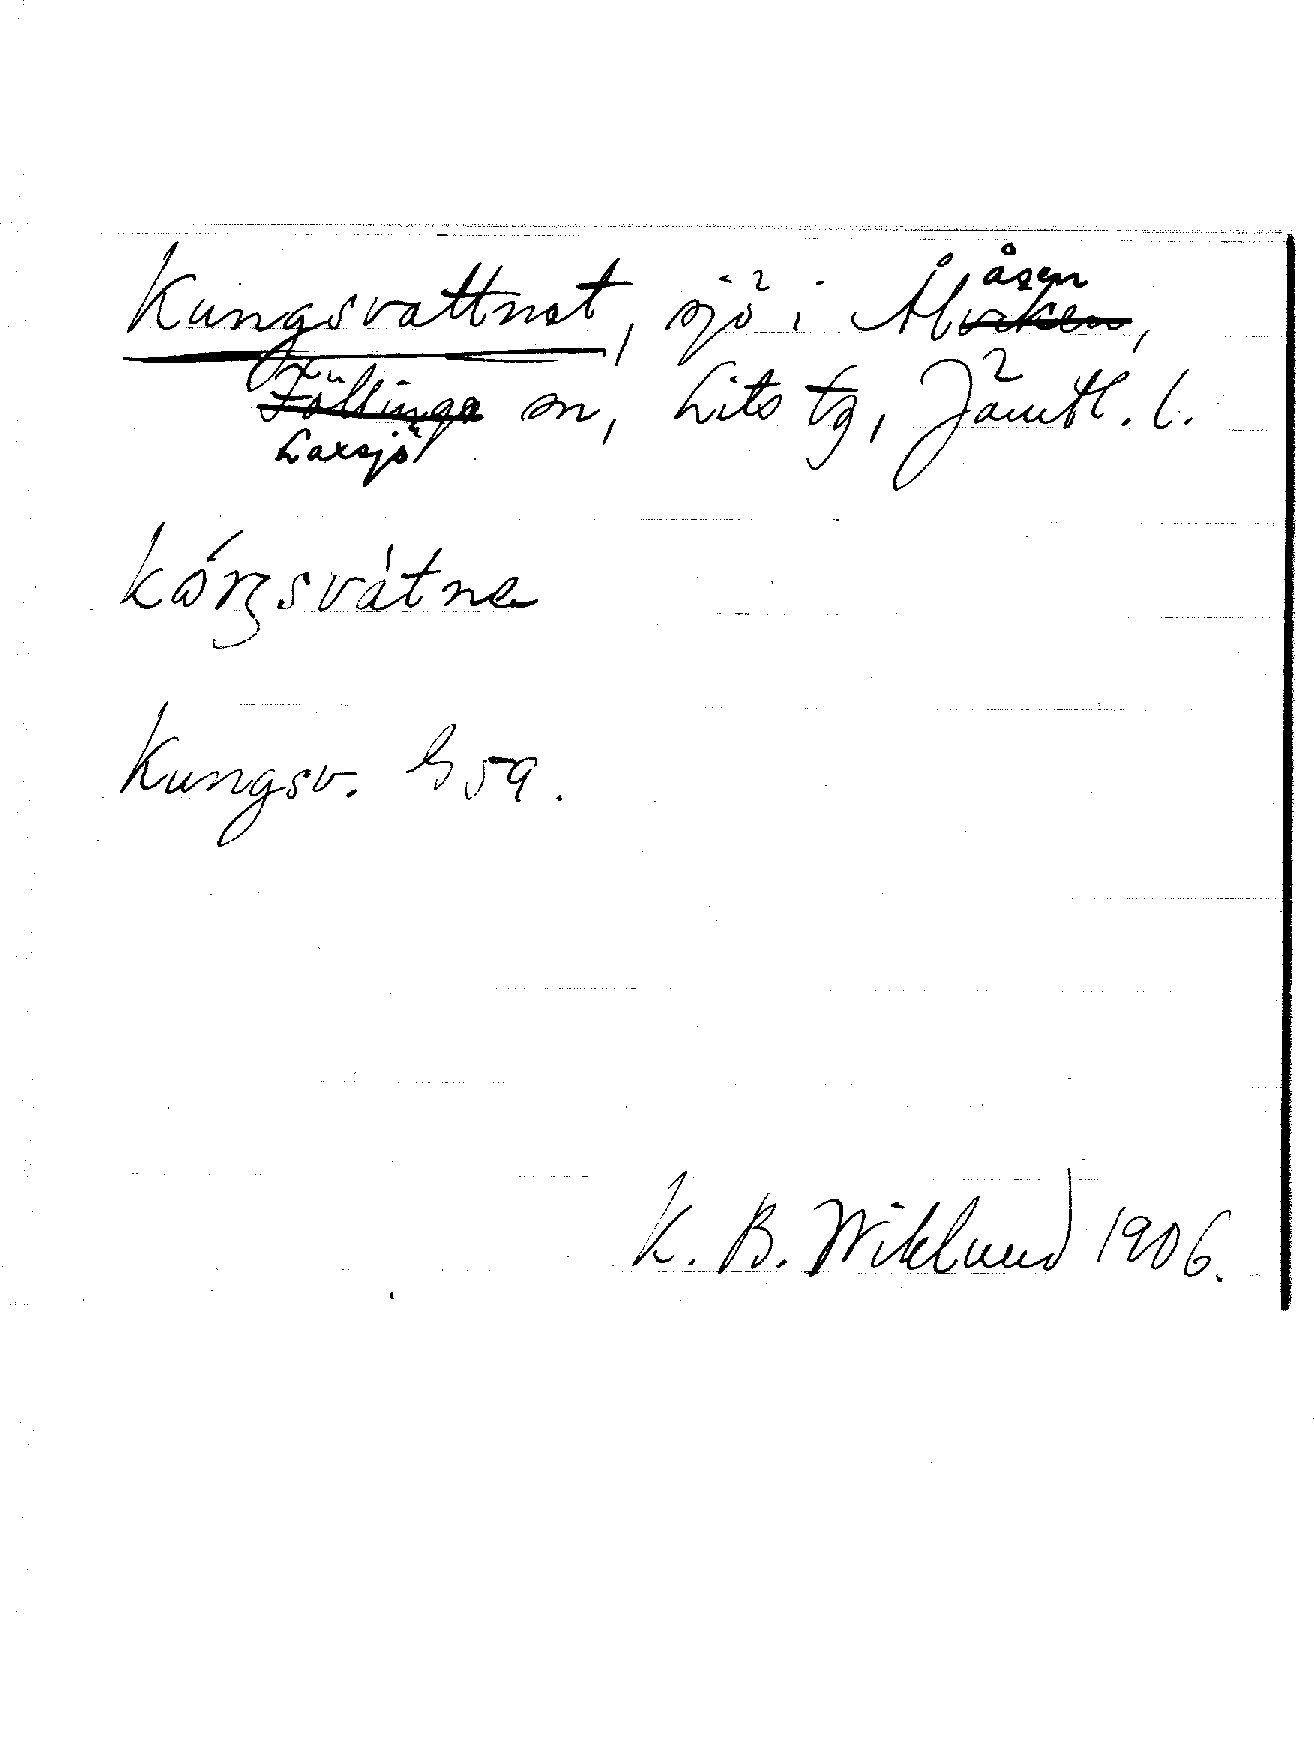 Kungsvattnet, sjö i Ålåsen,
Föllinga sn, Lits tg, Jämtl. l.
Laxsjö
Kungsv. G 59.
K. B. Wiklund 1906.